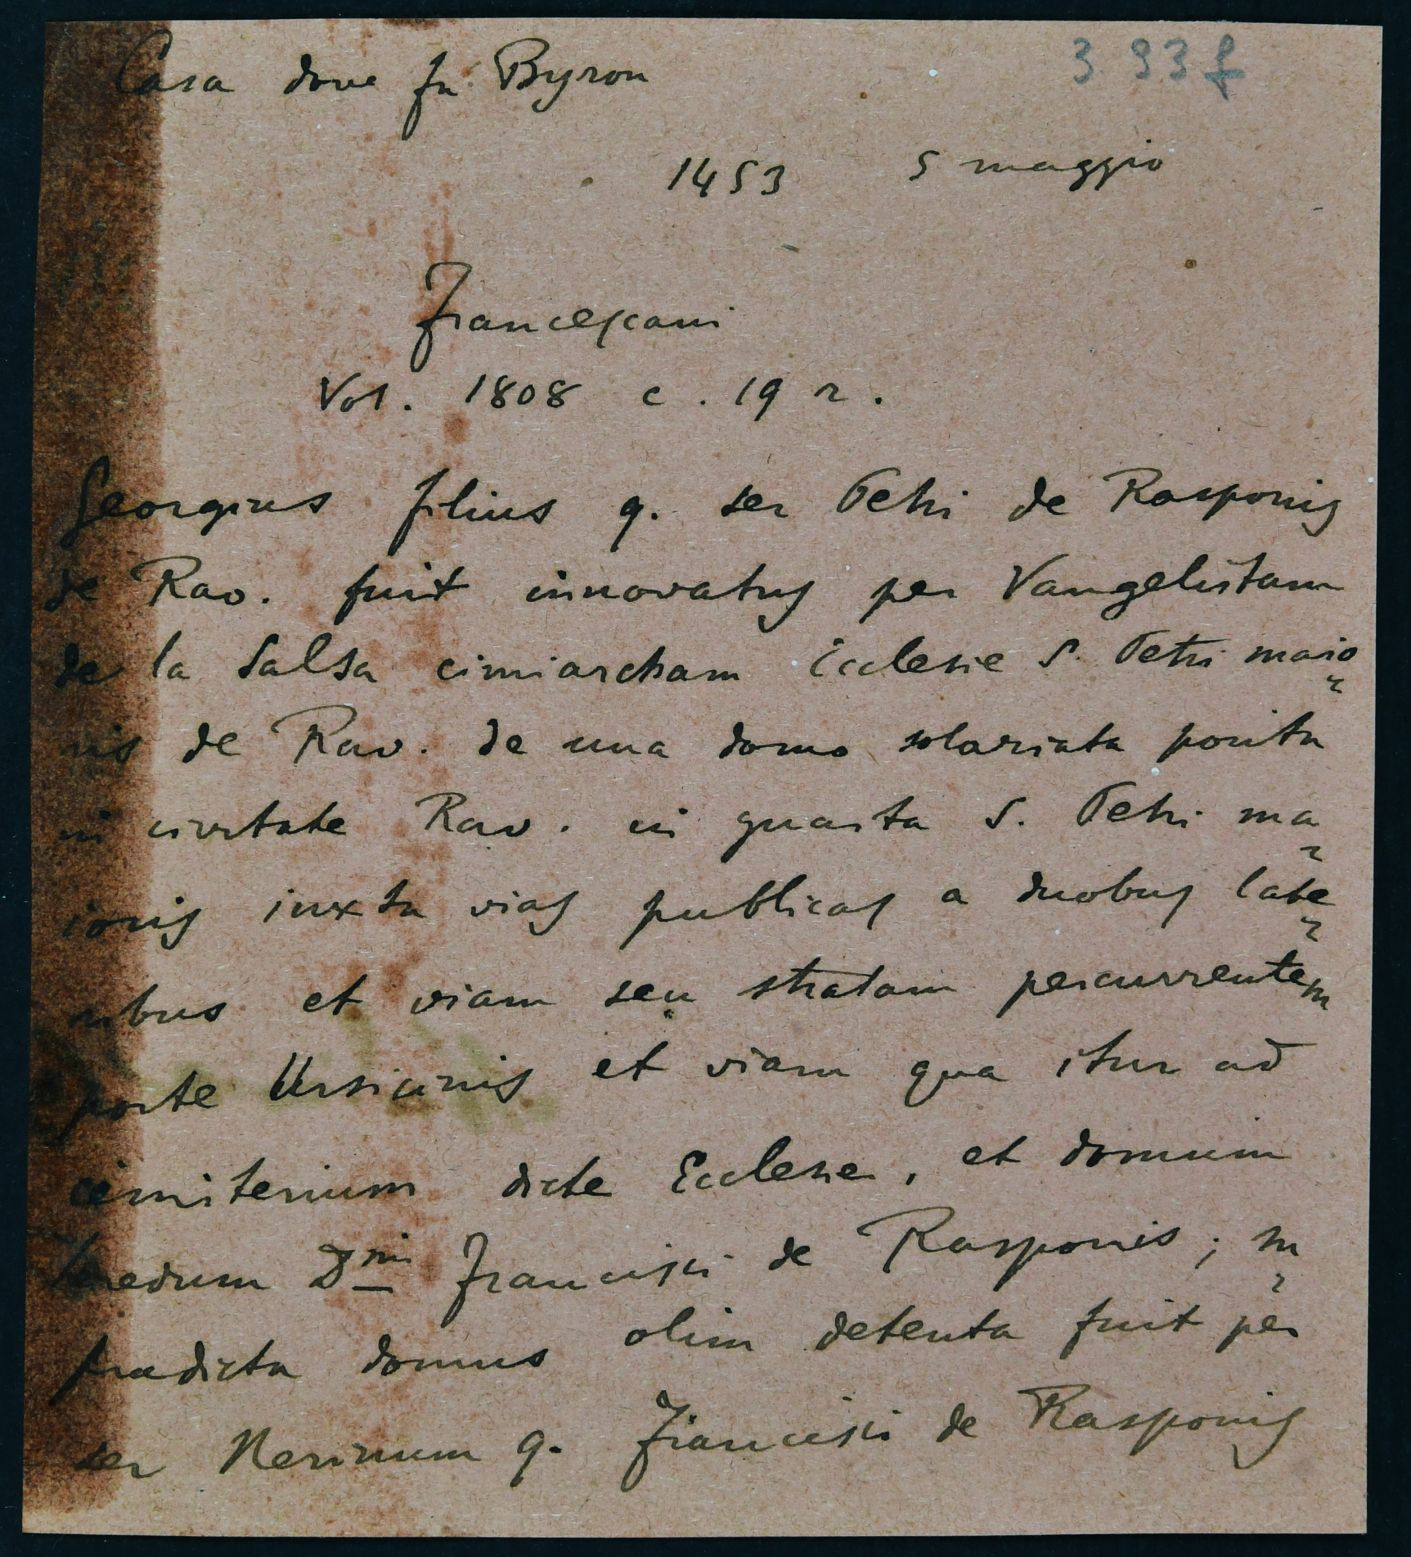 Casa dove fu Byron
393 f
1453 5 maggio
Francescani
Vol. 1808 c. 19 r.
Georgius filius q. ser Petri de Rasponis
de Rav. fuit innovatus per Vangelistam
de la Salsa cimiarcham Ecclesie S. Petri maio
ris de Rav. de una domo solariata posita
in civitate Rav. in guaita S. Petri ma
ioris iuxta vias publicas a duobus late
ribus et viam seu stratam percurrentem
porte Ursicinis et viam qua itur ad
cimiterium dicte Ecclesie, et domum
heredum Dni Francisci de Rasponis; su
pradicta domus olim detenta fuit per
ser Nerinum q. Francisci de Rasponis